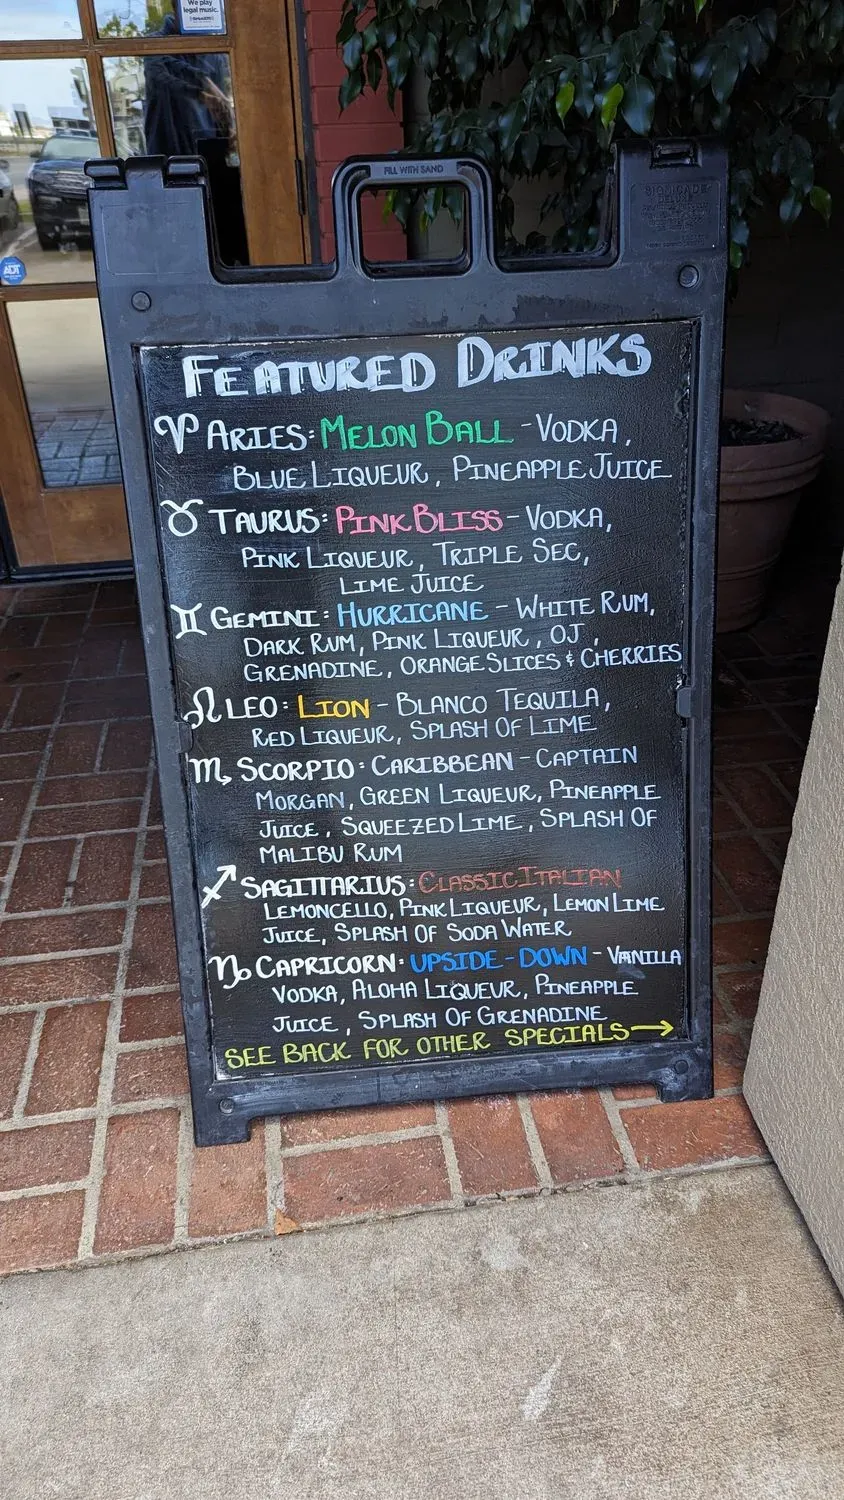 We play
legal music.
ADT
FILL WITH SAND
SIGNICADE
DELUXE
FEATURED DRINKS
♈ ARIES: MELON BALL - VODKA,
BLUE LIQUEUR, PINEAPPLE JUICE
♉ TAURUS: PINK BLISS - VODKA,
PINK LIQUEUR, TRIPLE SEC,
LIME JUICE
♊ GEMINI: HURRICANE - WHITE RUM,
DARK RUM, PINK LIQUEUR, OJ,
GRENADINE, ORANGE SLICES & CHERRIES
♌ LEO: LION - BLANCO TEQUILA,
RED LIQUEUR, SPLASH OF LIME
♏ SCORPIO: CARIBBEAN - CAPTAIN
MORGAN, GREEN LIQUEUR, PINEAPPLE
JUICE, SQUEEZED LIME, SPLASH OF
MALIBU RUM
♐ SAGITTARIUS: CLASSIC ITALIAN
LEMONCELLO, PINK LIQUEUR, LEMON LIME
JUICE, SPLASH OF SODA WATER
♑ CAPRICORN: UPSIDE-DOWN - VANILLA
VODKA, ALOHA LIQUEUR, PINEAPPLE
JUICE, SPLASH OF GRENADINE
SEE BACK FOR OTHER SPECIALS→